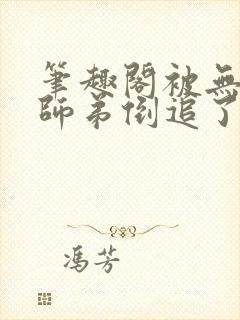 筆趣閣被無
師弟倒追了
馮芳